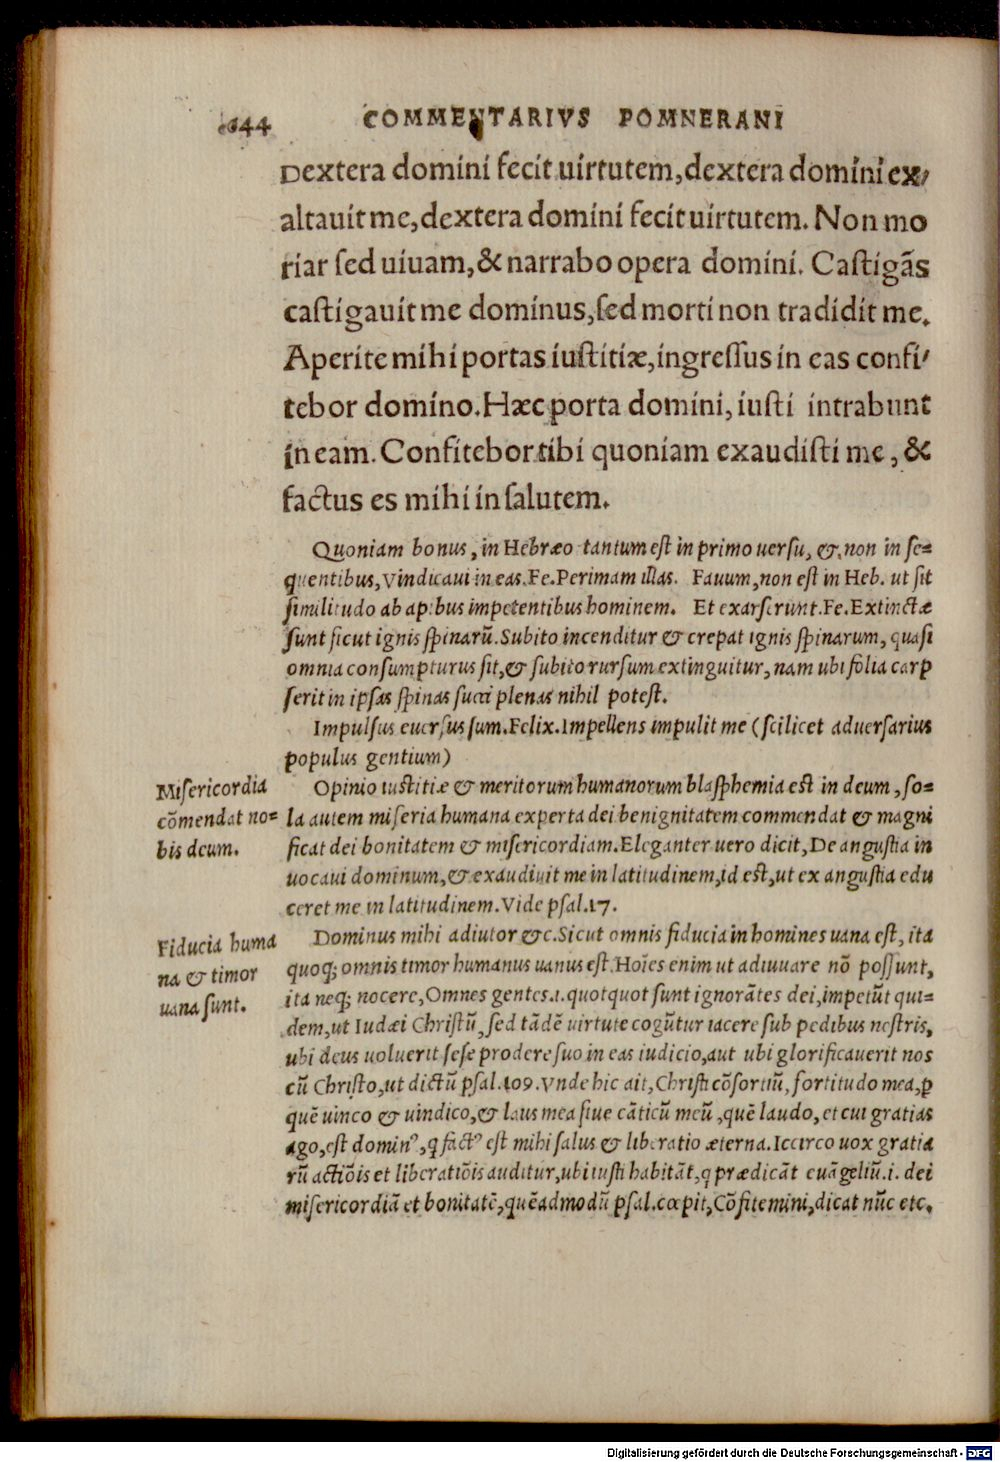 644 COMMENTARIVS POMNERANI
Dextera domini fecit uirtutem, dextera domini ex/
altauit me, dextera domini fecit uirtutem. Non mo
riar ſed uiuam, & narrabo opera domini. Caſtigãs
caſtigauit me dominus, ſed morti non tradidit me.
Aperite mihi portas iuſtitiæ, ingreſſus in eas confi/
tebor domino. Hæc porta domini, iuſti intrabunt
in eam. Confitebor tibi quoniam exaudiſti me, &
factus es mihi in ſalutem.
Quoniam bonus, in Hebræo tantum eſt in primo uerſu, & non in ſe=
quentibus, Vindicaui in eas. Fe. Perimam illas. Fauum, non eſt in Heb. ut ſit
ſimilitudo ab apibus impetentibus hominem. Et exarſerunt. Fe. Extinctæ
ſunt ſicut ignis ſpinarũ. Subito incenditur & crepat ignis ſpinarum, quaſi
omnia conſumpturus ſit, & ſubito rurſum extinguitur, nam ubi folia carp
ſerit in ipſas ſpinas ſucci plenas nihil poteſt.
Impulſus euerſus ſum. Felix. Impellens impulit me (ſcilicet aduerſarius
populus gentium)
Miſericordia
cõmendat no=
bis deum.
Opinio iuſtitiæ & meritorum humanorum blaſphemia eſt in deum, ſo=
la autem miſeria humana experta dei benignitatem commendat & magni
ficat dei bonitatem & miſericordiam. Eleganter uero dicit, De anguſtia in
uocaui dominum, & exaudiuit me in latitudinem, id eſt, ut ex anguſtia edu
ceret me in latitudinem. Vide pſal. 17.
Fiducia huma
na & timor
uana ſunt.
Dominus mihi adiutor &c. Sicut omnis fiducia in homines uana eſt, ita
quoq; omnis timor humanus uanus eſt. Hoĩes enim ut adiuuare nõ poſſunt,
ita neq; nocere, Omnes gentes .i. quotquot ſunt ignorãtes dei, impetũt qui=
dem, ut Iudæi Chriſtũ, ſed tãdẽ uirtute cogũtur iacere ſub pedibus noſtris,
ubi deus uoluerit ſeſe prodere ſuo in eas iudicio, aut ubi glorificauerit nos
cũ Chriſto, ut dictũ pſal. 109. Vnde hic ait, Chriſti cõſortiũ, fortitudo mea, ꝑ
quẽ uinco & uindico, & laus mea ſiue cãticũ meũ, quẽ laudo, et cui gratias
ago, eſt dominꝰ, q factꝰ eſt mihi ſalus & liberatio æterna. Iccirco uox gratia
rũ actiõis et liberatiõis auditur, ubi iuſti habitãt, q prædicãt euãgeliũ .i. dei
miſericordiã et bonitatẽ, quẽadmodũ pſal. cœpit, Cõfitemini, dicat nũc etc.
Digitalisierung gefördert durch die Deutsche Forschungsgemeinschaft - DFG